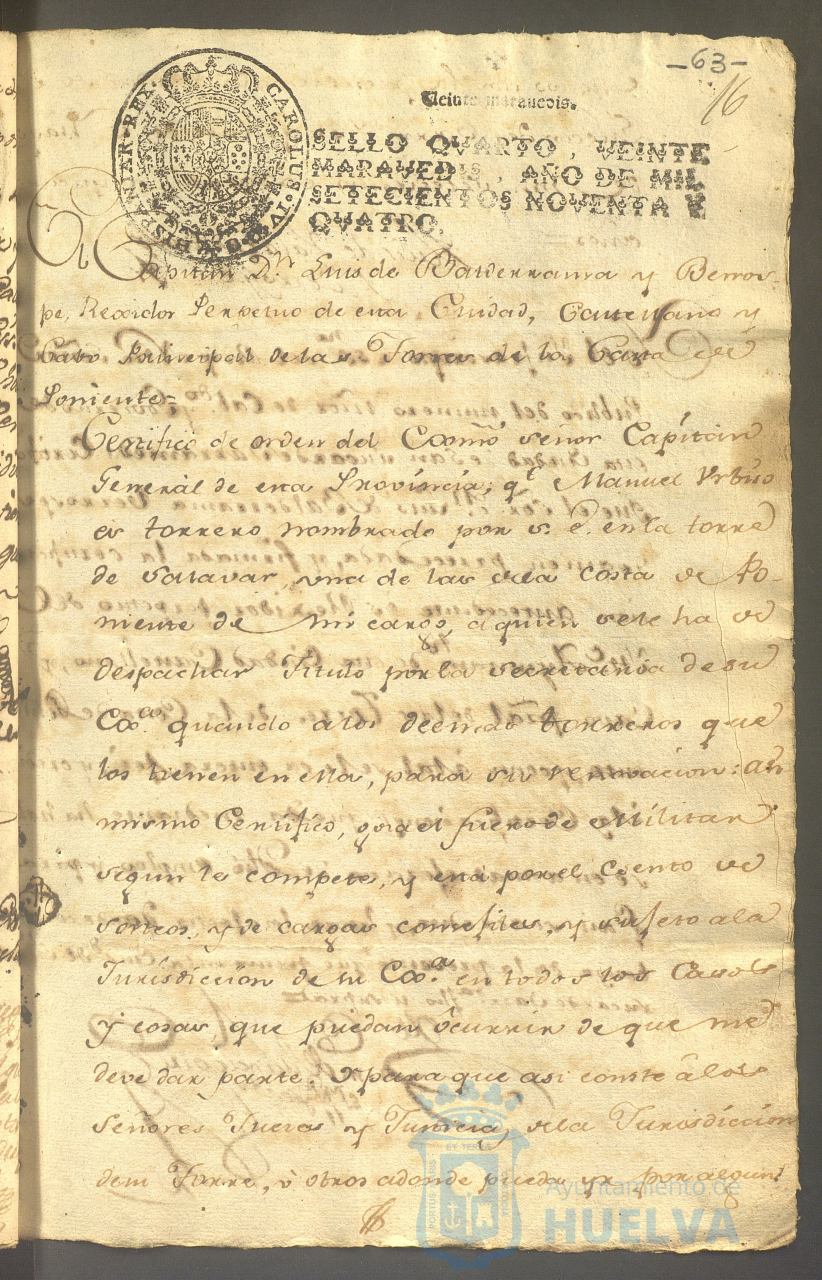 -63-
16
Veinte maravedis.
CAROLUS·IV·D·G·HISPANIAR·REX·
SELLO QVARTO, VEINTE
MARAVEDIS, AÑO DE MIL
SETECIENTOS NOVENTA Y
QVATRO.
Capitan Dn. Luis de Balderrama y Berros-
pe, Rexidor Perpetuo de esta Ciudad, Castellano y
Cabo Principal de las Torres de la Costa de
Poniente=
Certifico de orden del Exmô señor Capitan
General de esta Provincia; qe. Manuel
es torrero nombrado por S. E. en la torre
de Salavar, una de las dela costa de Po-
niente de mi cargo, a quien sele ha de
despachar Titulo por la Secretaria de su
Exâ. quando a los demas torreros que
los tienen en ella, para su renovacion: asi
mismo Certifico, goza el fuero de Militar
segun le compete, y está por el Esento de
sorteos, y de cargas consejiles, y sujeto ala
Jurisdiccion de su Exâ. en todos los Casos
y cosas, que puedan ôcurrir de que me
deve dar parte. Y para que asi conste âlos
Señores Jueces y Justicias dela Jurisdiccion
desu Torre, û otros adonde pueda yr por algun
PORTUS MARIS ET TERRAE CUSTODIA
Ayuntamiento de
HUELVA